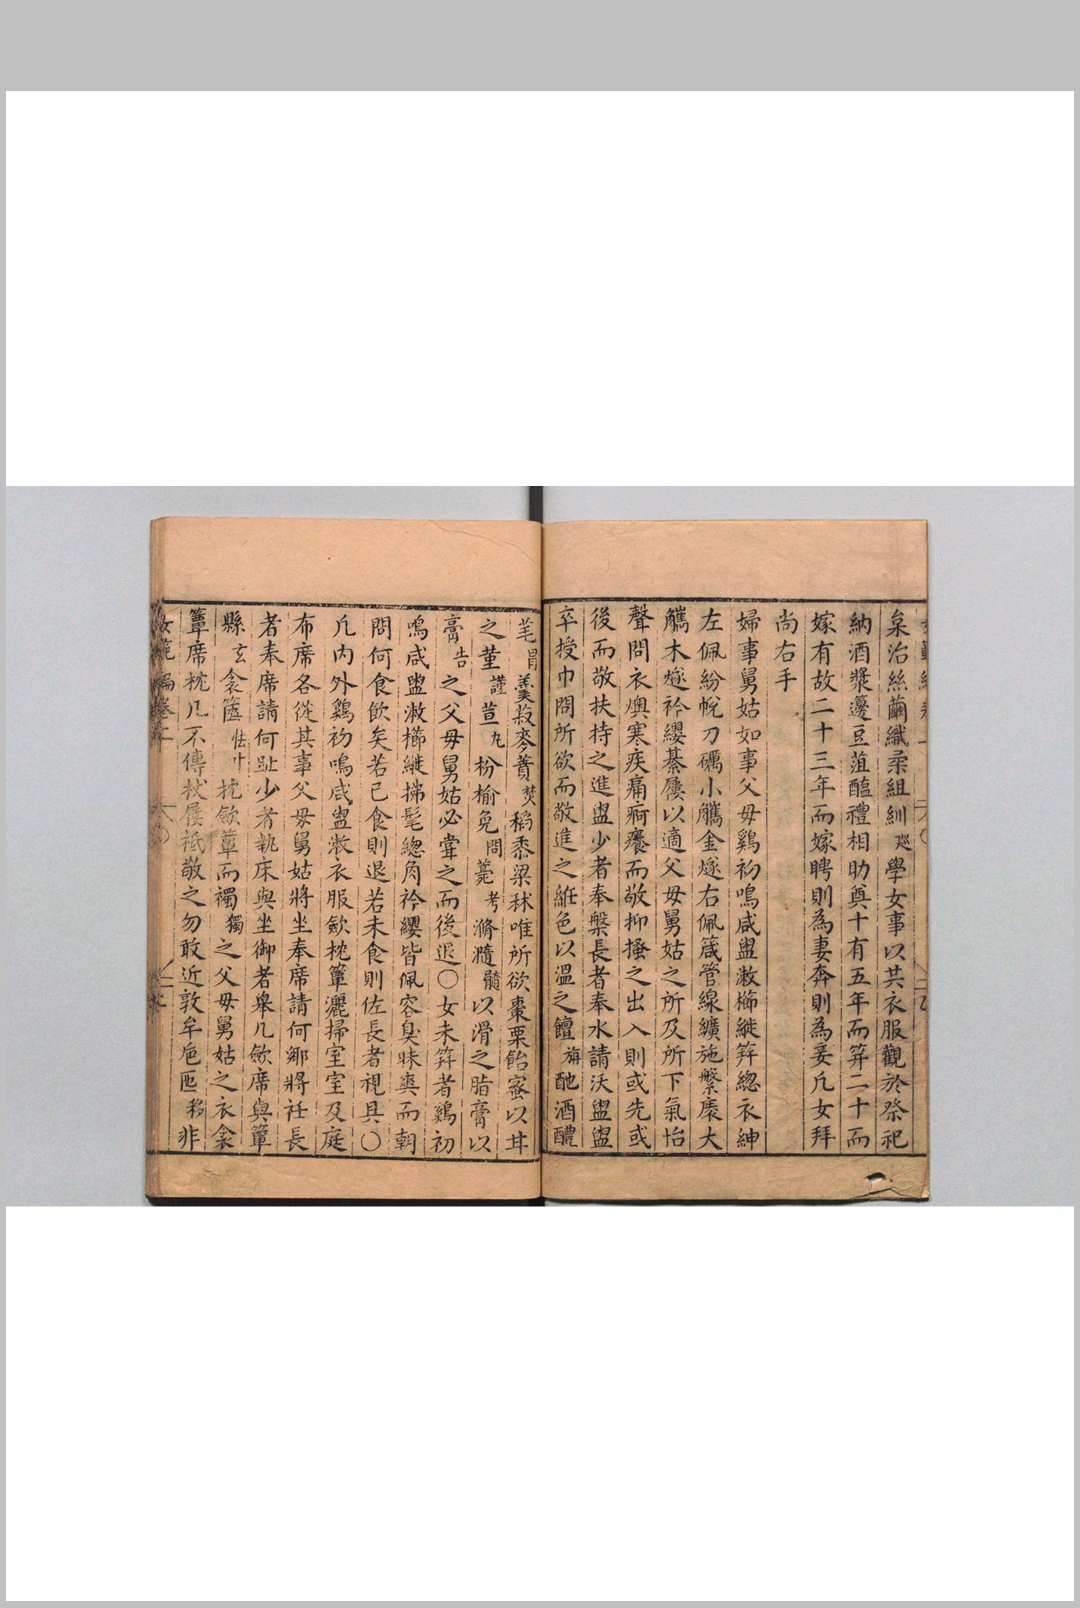 枲治絲繭織柔組紃廵學女事以共衣服觀於祭祀
納酒漿籩豆菹醢禮相助奠十有五年而筓二十而
嫁有故二十三年而嫁聘則為妻奔則為妾凢女拜
尚右手
婦事舅姑如事父母鷄初鳴咸盥漱櫛縰筓緫衣紳
左佩紛帨刀礪小觿金燧右佩箴管線纊施縏袠大
觿木燧衿纓綦屨以適父母舅姑之所及所下氣怡
聲問衣燠寒疾痛疴癢而敬抑搔之出入則或先或
後而敬扶持之進盥少者奉槃長者奉水請沃盥盥
卒授巾問所欲而敬進之柔色以溫之饘旃酏酒醴
芼冒羮菽麥蕡焚稻黍梁秫唯所欲棗栗飴蜜以甘
之菫謹荁丸枌榆免問薧考滫瀡髓以滑之脂膏以
膏告之父母舅姑必甞之而後退〇女未筓者鷄初
鳴咸盥漱櫛縰拂髦緫角衿纓皆佩容臭昧爽而朝
問何食飲矣若已食則退若未食則佐長者視具〇
凢內外鷄初鳴咸盥漱衣服歛枕簟灑掃室堂及庭
布席各從其事父母舅姑將坐奉席請何鄉將衽長
者奉席請何趾少者執床與坐御者舉几歛席與簟
縣玄衾篋怯叶枕歛簟而襡獨之父母舅姑之衣衾
簟席枕几不傳杖屨祗敬之勿敢近敦牟巵匜移非